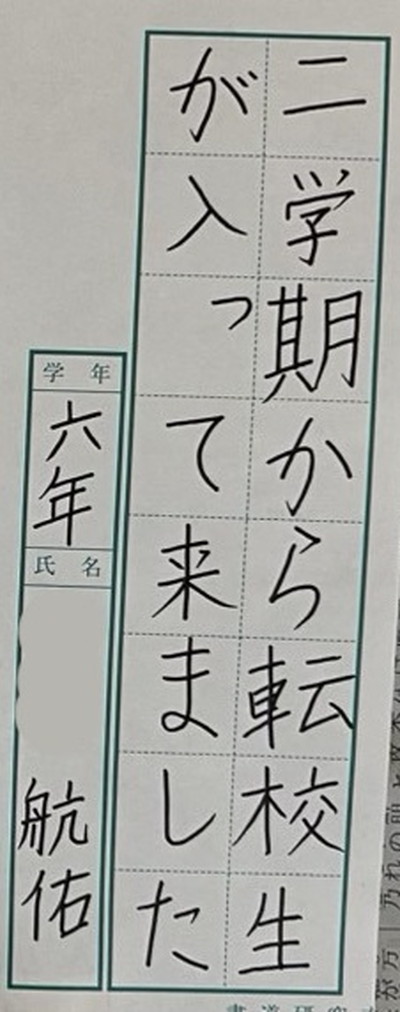 二学期から転校生
が入って来ました
学年
六年
氏名
航佑